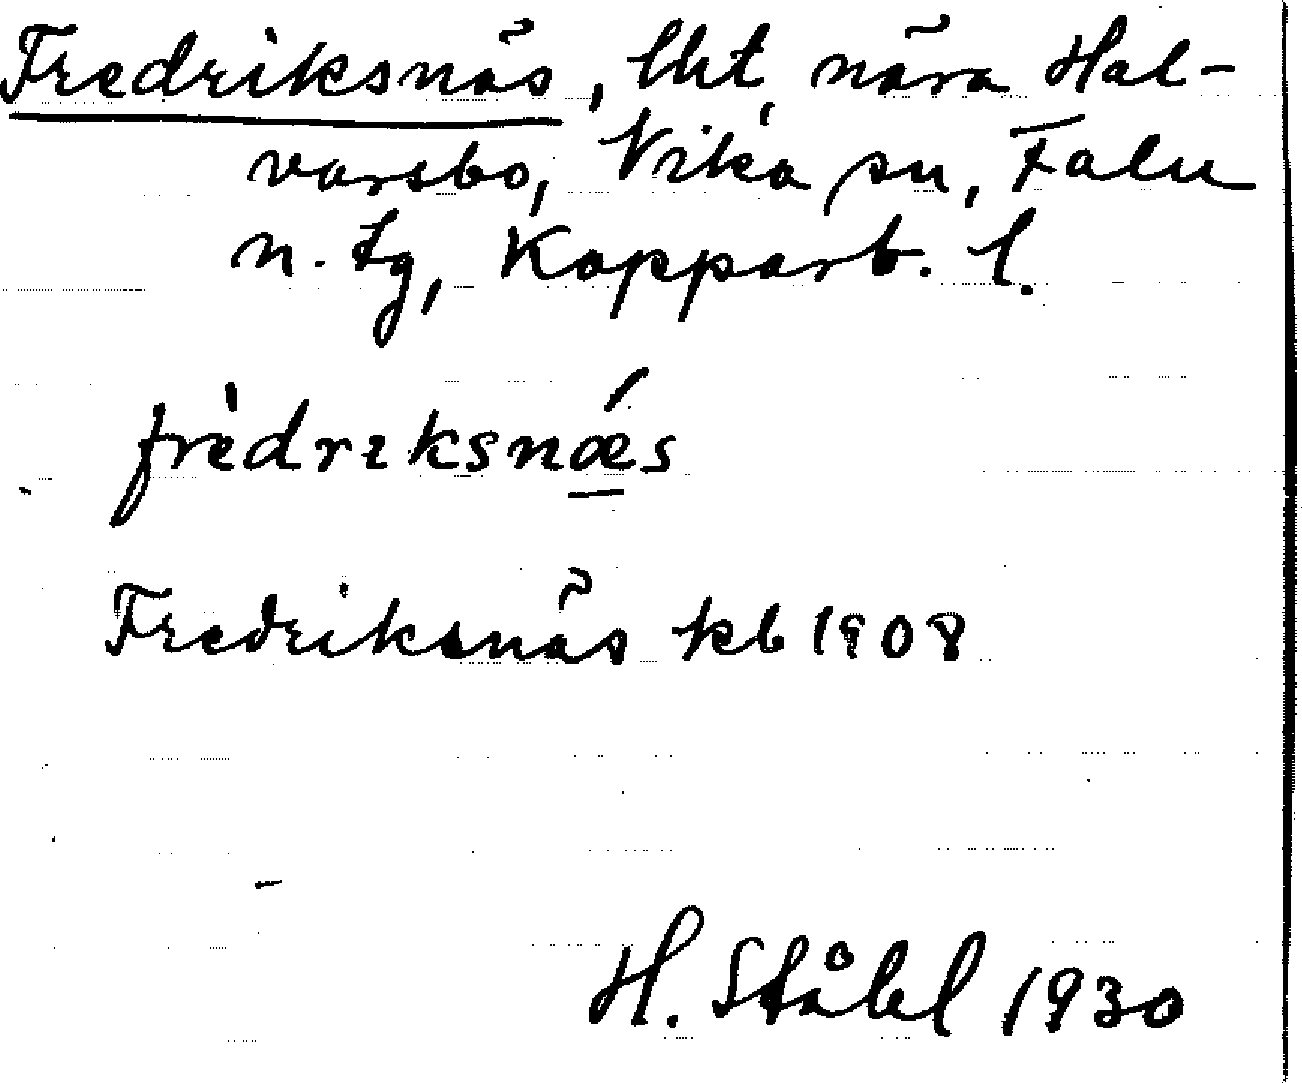 Fredriksnäs, lht, nära Hal-
varsbo, Vika sn, Falu
n. tg, Kopparb. l.
frè̀driksnǽs
Fredriksnäs kb 1908
H. Ståhl 1930